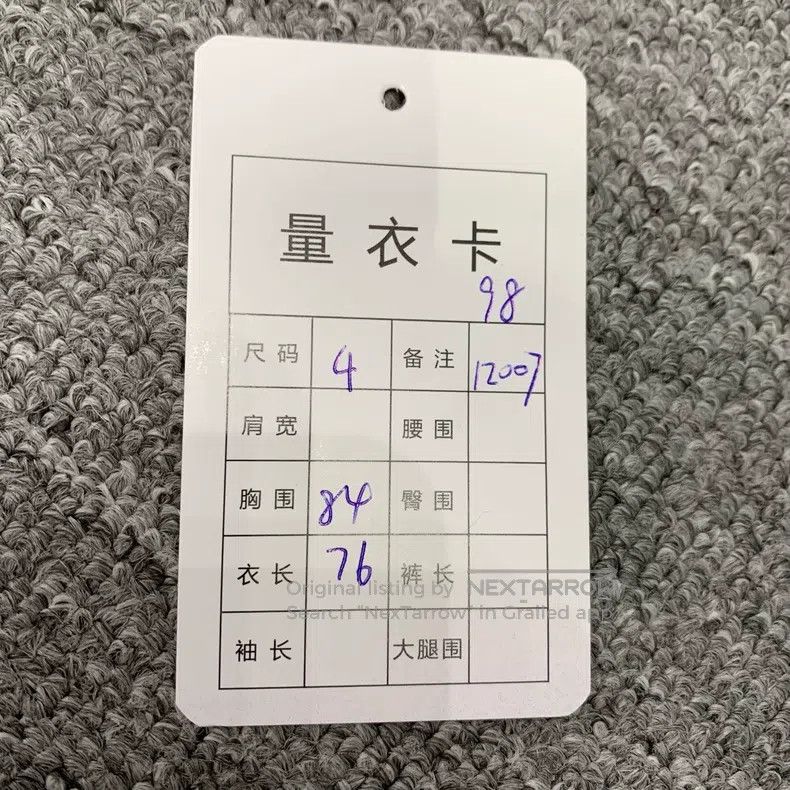 量衣卡
98
尺码 4 备注 12007
肩宽 腰围
胸围 84 臀围
衣长 76 裤长
Original listing by NEXTARROW
Search "NexTarrow" in Grailed app
袖长 大腿围